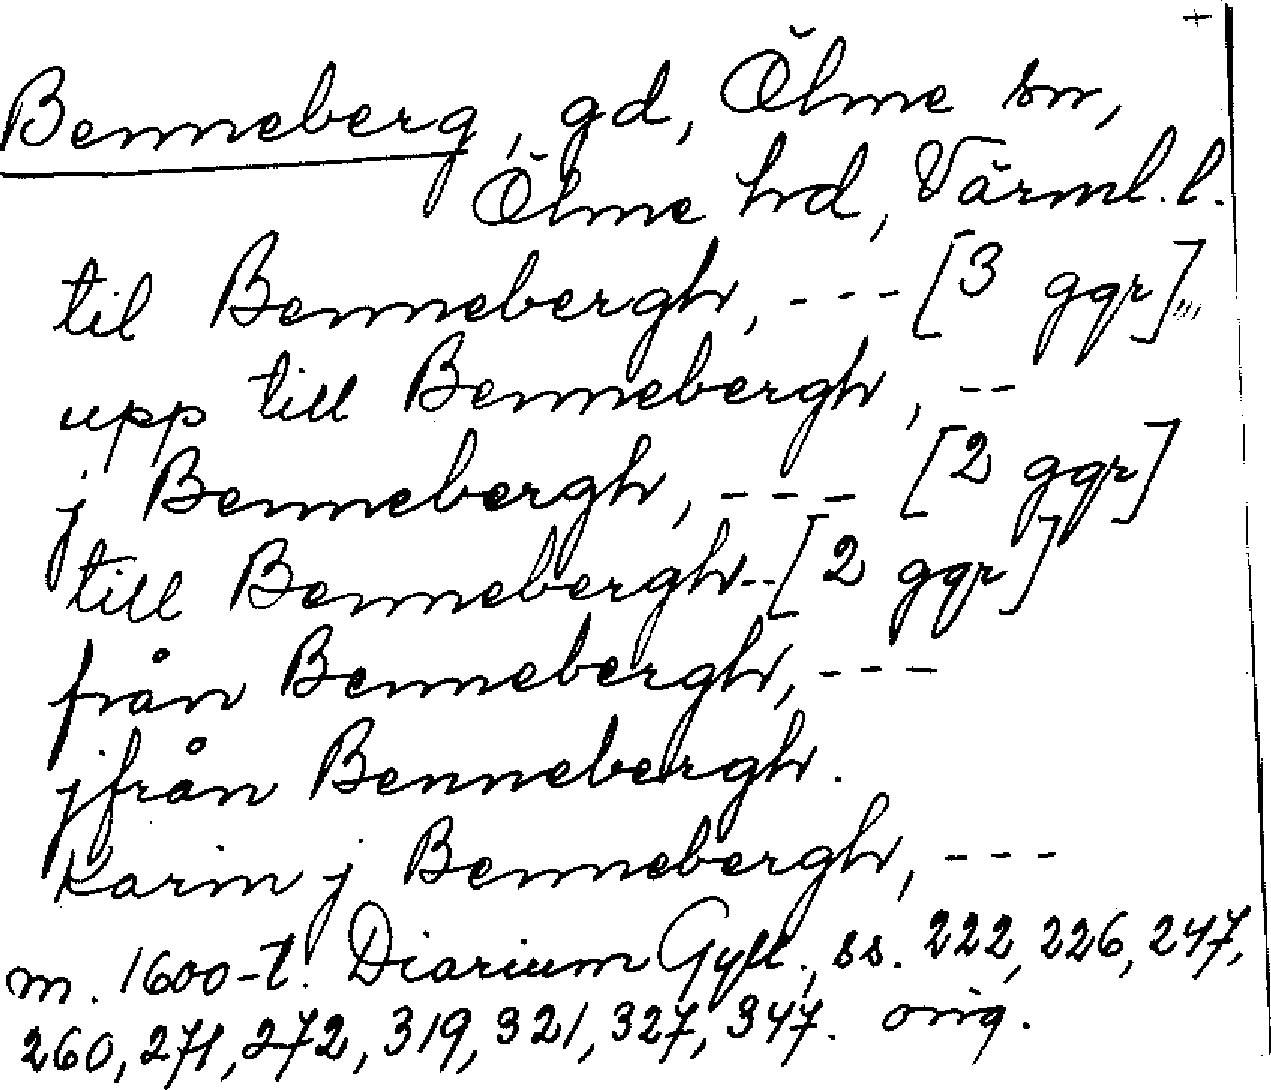 +
Benneberg, gd, Ölme sn,
Ölme hd, Värml. l.
til Bennebergh, --- [3 ggr]
upp till Bennebergh, --
j Bennebergh, --- [2 ggr]
till Bennebergh -- [2 ggr]
från Bennebergh, ---
jfrån Bennebergh.
karin j Bennebergh, ---
m. 1600-t. Diarium Gyll., ss. 222, 226, 247,
260, 271, 272, 319, 321, 327, 347. orig.